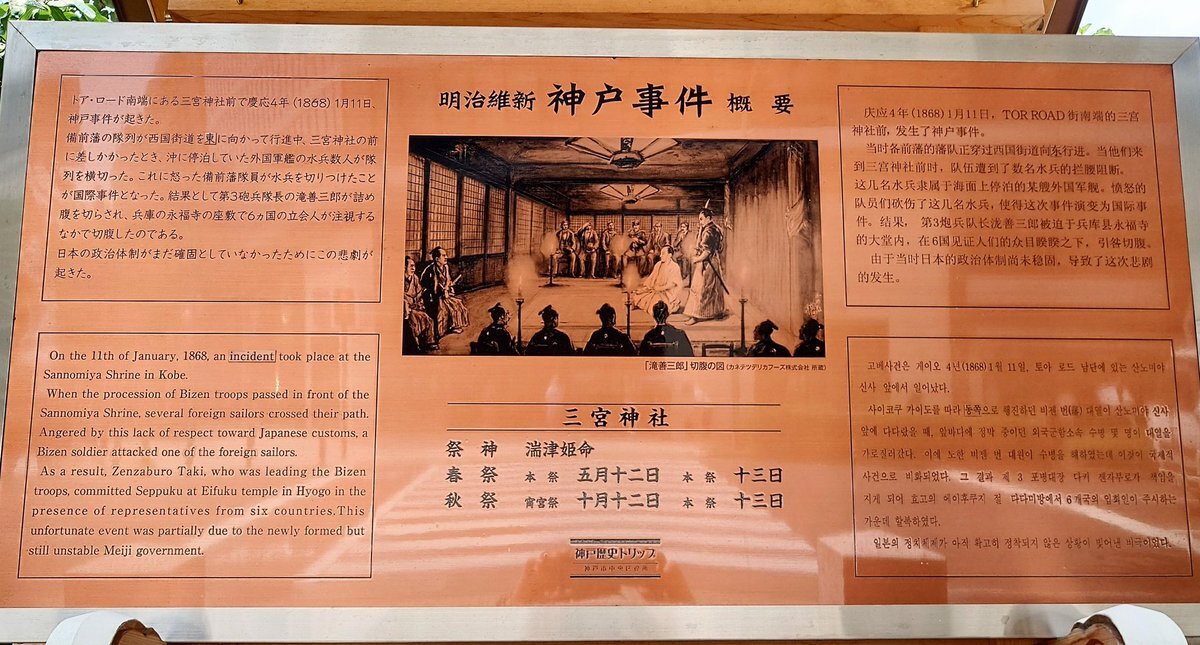 明治維新 神戸事件 概要
トア・ロード南端にある三宮神社前で慶応4年(1868)1月11日、
神戸事件が起きた。
備前藩の隊列が西国街道を東に向かって行進中、三宮神社の前
に差しかかったとき、沖に停泊していた外国軍艦の水兵数人が隊
列を横切った。これに怒った備前藩隊員が水兵を切りつけたこと
が国際事件となった。結果として第3砲兵隊長の滝善三郎が詰め
腹を切らされ、兵庫の永福寺の座敷で6ヵ国の立会人が注視する
なかで切腹したのである。
日本の政治体制がまだ確固としていなかったためにこの悲劇が
起きた。
On the 11th of January, 1868, an incident took place at the
Sannomiya Shrine in Kobe.
When the procession of Bizen troops passed in front of the
Sannomiya Shrine, several foreign sailors crossed their path.
Angered by this lack of respect toward Japanese customs, a
Bizen soldier attacked one of the foreign sailors.
As a result, Zenzaburo Taki, who was leading the Bizen
troops, committed Seppuku at Eifuku temple in Hyogo in the
presence of representatives from six countries.This
unfortunate event was partially due to the newly formed but
still unstable Meiji government.
「滝善三郎」切腹の図(カネテツデリカフーズ株式会社 所蔵)
三宮神社
祭神 湍津姫命
春祭 本祭 五月十二日 本祭 十三日
秋祭 宵宮祭 十月十二日 本祭 十三日
神戸歴史トリップ
神戸市中央区役所
庆应4年(1868)1月11日，TOR ROAD 街南端的三宫
神社前，发生了神户事件。
当时备前藩的藩队正穿过西国街道向东行进。当他们来
到三宫神社前时，队伍遭到了数名水兵的拦腰阻断。
这几名水兵隶属于海面上停泊的某艘外国军舰。愤怒的
队员们砍伤了这几名水兵，使得这次事件演变为国际事
件。结果， 第3炮兵队长泷善三郎被迫于兵库县永福寺
的大堂内，在6国见证人们的众目睽睽之下，引咎切腹。
由于当时日本的政治体制尚未稳固，导致了这次悲剧
的发生。
고베사건은 게이오 4년(1868)1월 11일, 토아 로드 남단에 있는 산노미야
신사 앞에서 일어났다.
사이코쿠 가이도를 따라 동쪽으로 행진하던 비젠 번(藩) 대열이 산노미야 신사
앞에 다다랐을 때, 앞바다에 정박 중이던 외국군함소속 수병 몇 명이 대열을
가로질러갔다. 이에 노한 비젠 번 대원이 수병을 해하였는데 이것이 국제적
사건으로 비화되었다. 그 결과 제 3 포병대장 다키 젠자부로가 책임을
지게 되어 효고의 에이후쿠지 절 다다미방에서 6개국의 입회인이 주시하는
가운데 할복하였다.
일본의 정치체제가 아직 확고히 정착되지 않은 상황이 빚어낸 비극이었다.